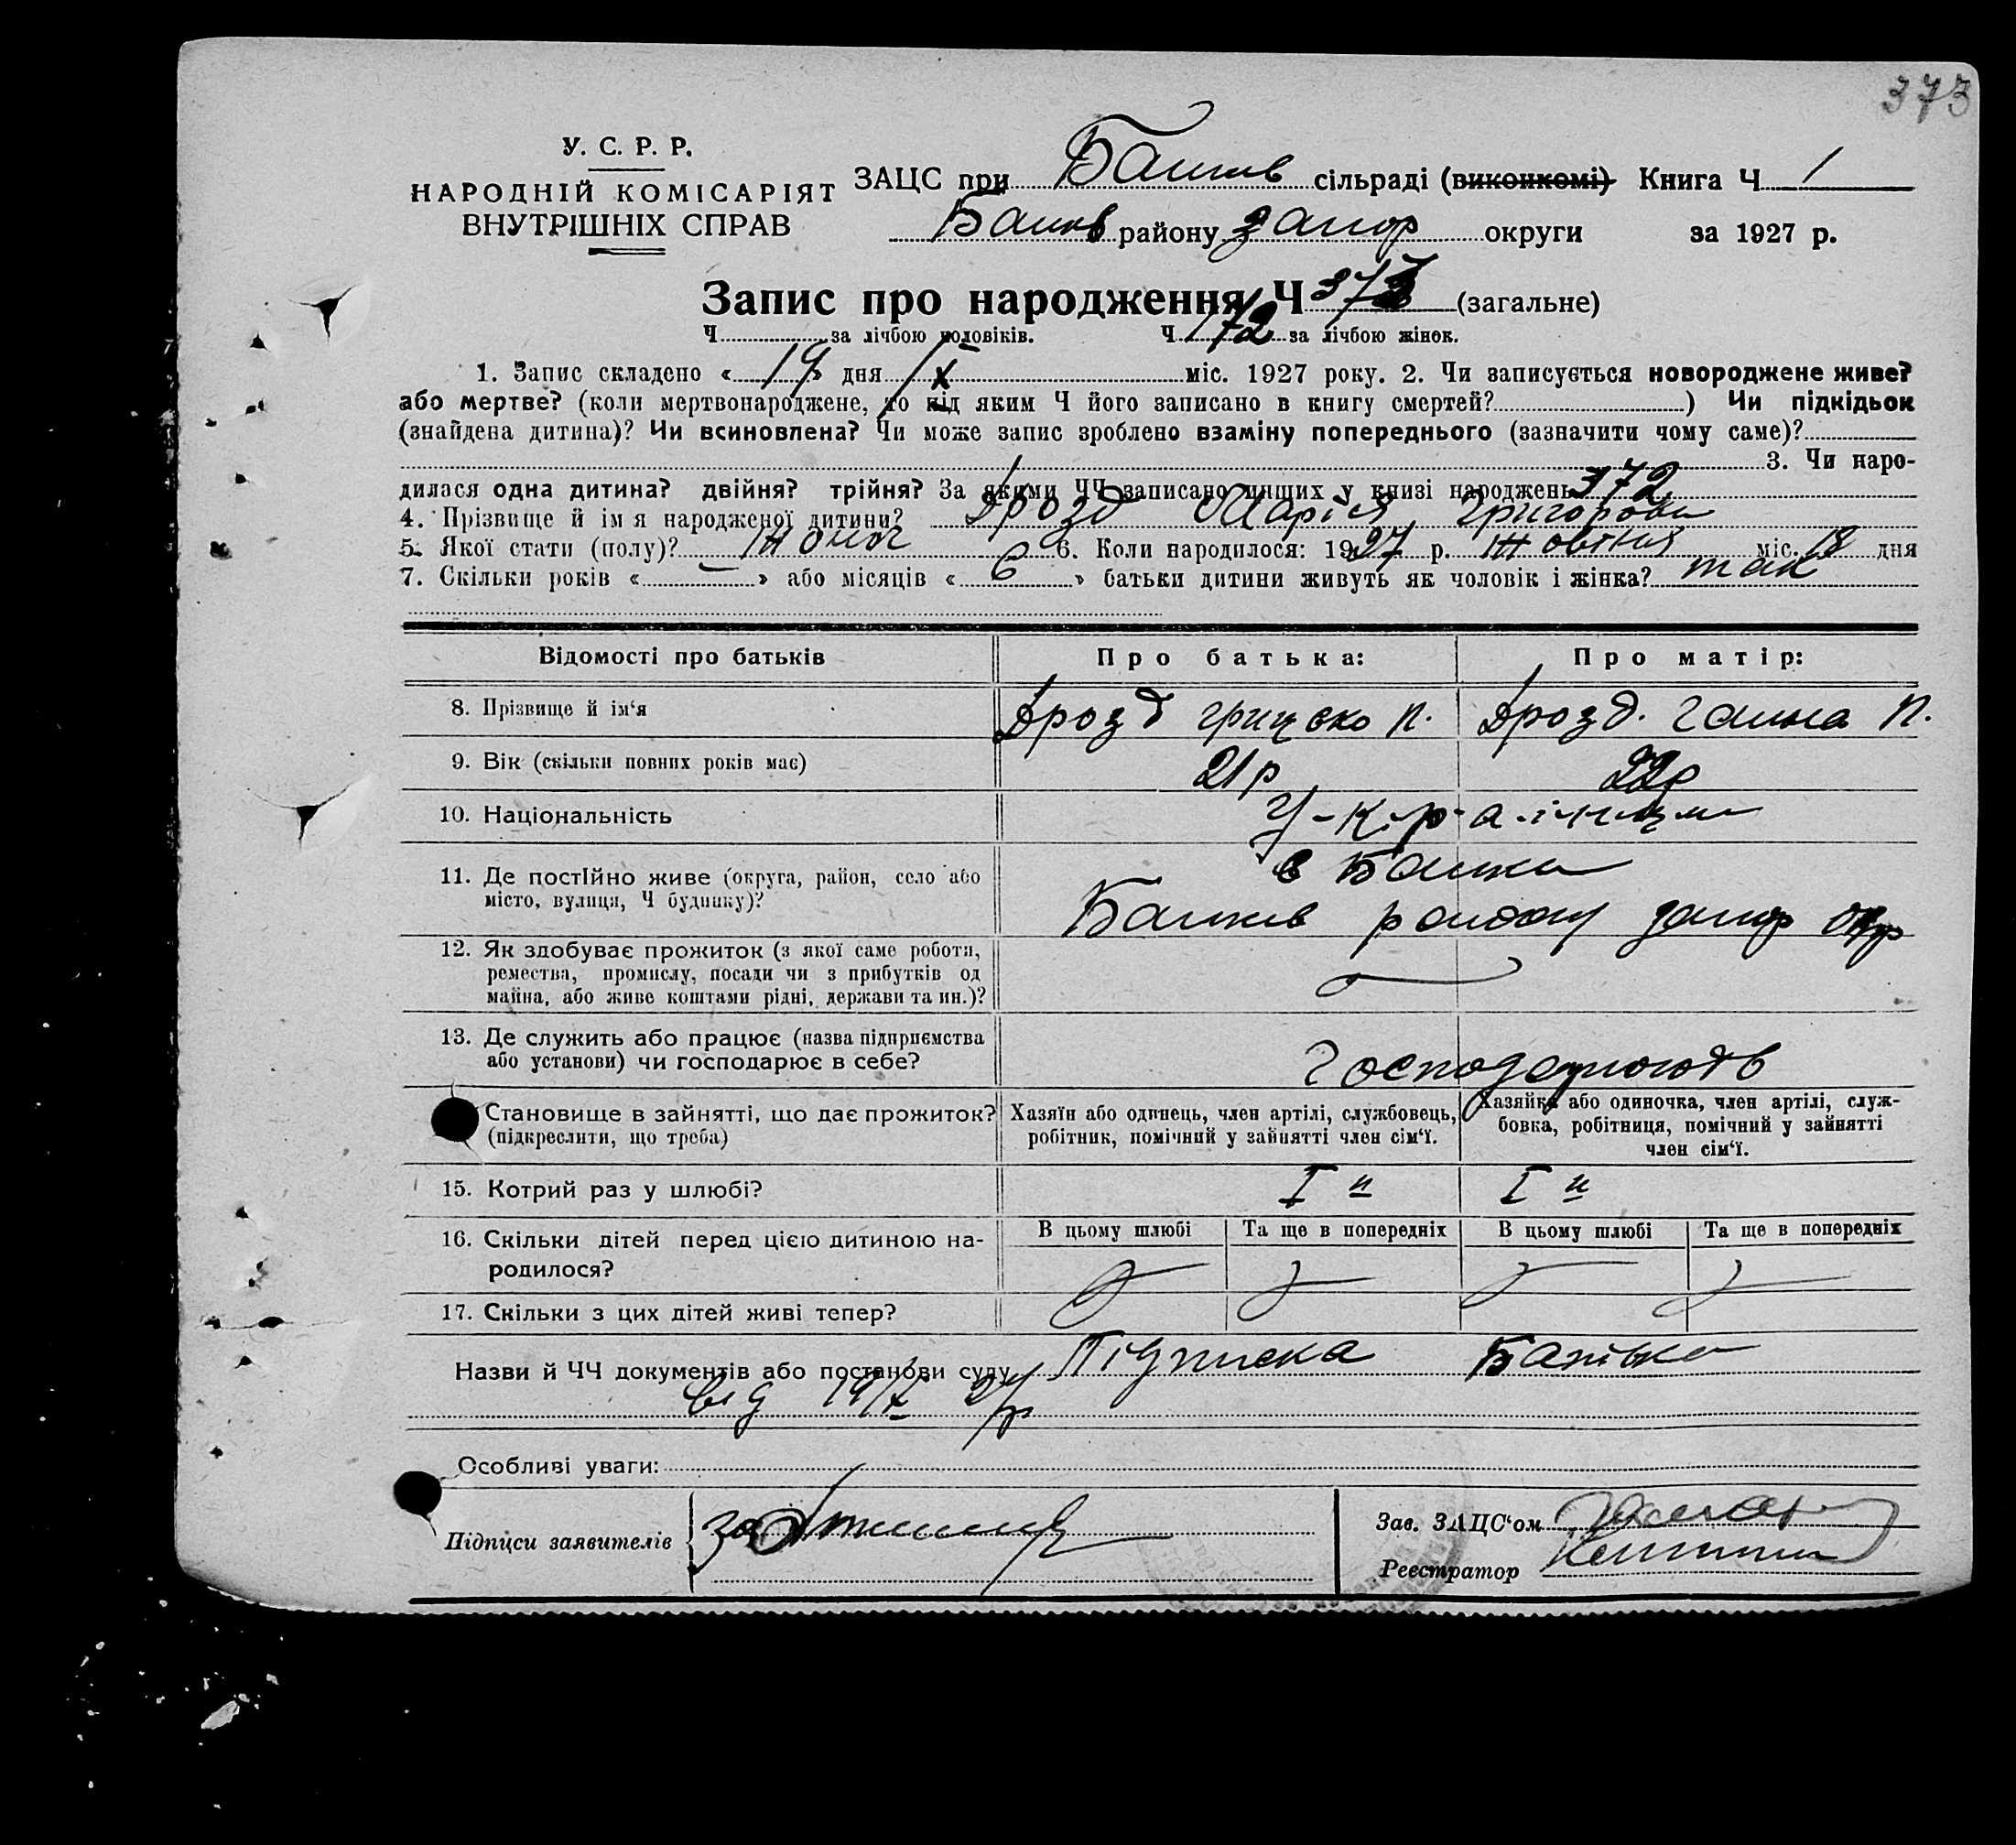 373
У. С. Р. Р.
НАРОДНІЙ КОМІСАРІЯТ
ВНУТРІШНІХ СПРАВ
ЗАЦС при сільраді (виконкомі) Книга Ч 1
району Запор округи за 1927 р.
Запис про народження Ч 373 (загальне)
Ч за лічбою чоловіків. Ч 172 за лічбою жінок.
1. Запис складено « 19 » дня X міс. 1927 року. 2. Чи записується новороджене живе?
або мертве? (коли мертвонароджене, то під яким Ч його записано в книгу смертей? ) Чи підкідьок
(знайдена дитина)? Чи всиновлена? Чи може запис зроблено взаміну попереднього (зазначити чому саме)?
3. Чи наро-
дилася одна дитина? двійня? трійня? За якими ЧЧ записано инших у книзі народжень 372
4. Прізвище й ім я народженої дитини? Дрозд Марія Григоровн
5. Якої стати (полу)? 6. Коли народилося: 1927 р. Жовтня міс. 18 дня
7. Скільки років « – » або місяців « 6 » батьки дитини живуть як чоловік і жінка? так
Відомості про батьків Про батька: Про матір:
8. Прізвище й ім‘я Дрозд Грицько П. Дрозд Ганна П.
9. Вік (скільки повних років має) 21 р 22 р
10. Національність У-к-р-а-їнци
11. Де постІйно живе (округа, район, село або
місто, вулиця, Ч будинку)?
району Запор окр
12. Як здобуває прожиток (з якої саме роботи,
ремества, промислу, посади чи з прибутків од
майна, або живе коштами рідні, держави та ин.)?
13. Де служить або працює (назва підприємства
або установи) чи господарює в себе? Господарюють
Становище в зайнятті, що дає прожиток? Хазяїн або одинець, член артілі, службовець, Хазяйка або одиночка, член артілі, служ-
(підкреслити, що треба) робітник, помічний у зайнятті член сім‘ї. бовка, робітниця, помічний у зайнятті
член сім‘ї.
15. Котрий раз у шлюбі? I й I й
16. Скільки дітей перед цією дитиною на- В цьому шлюбі Та ще в попередніх В цьому шлюбі Та ще в попередніх
родилося?
17. Скільки з цих дітей живі тепер?
Назви й ЧЧ документів або постанови суду Підписка Батька
від 19/X 27 р
Особливі уваги:
Підписи заявителів
Зав. ЗАЦС‘ом
Реєстратор